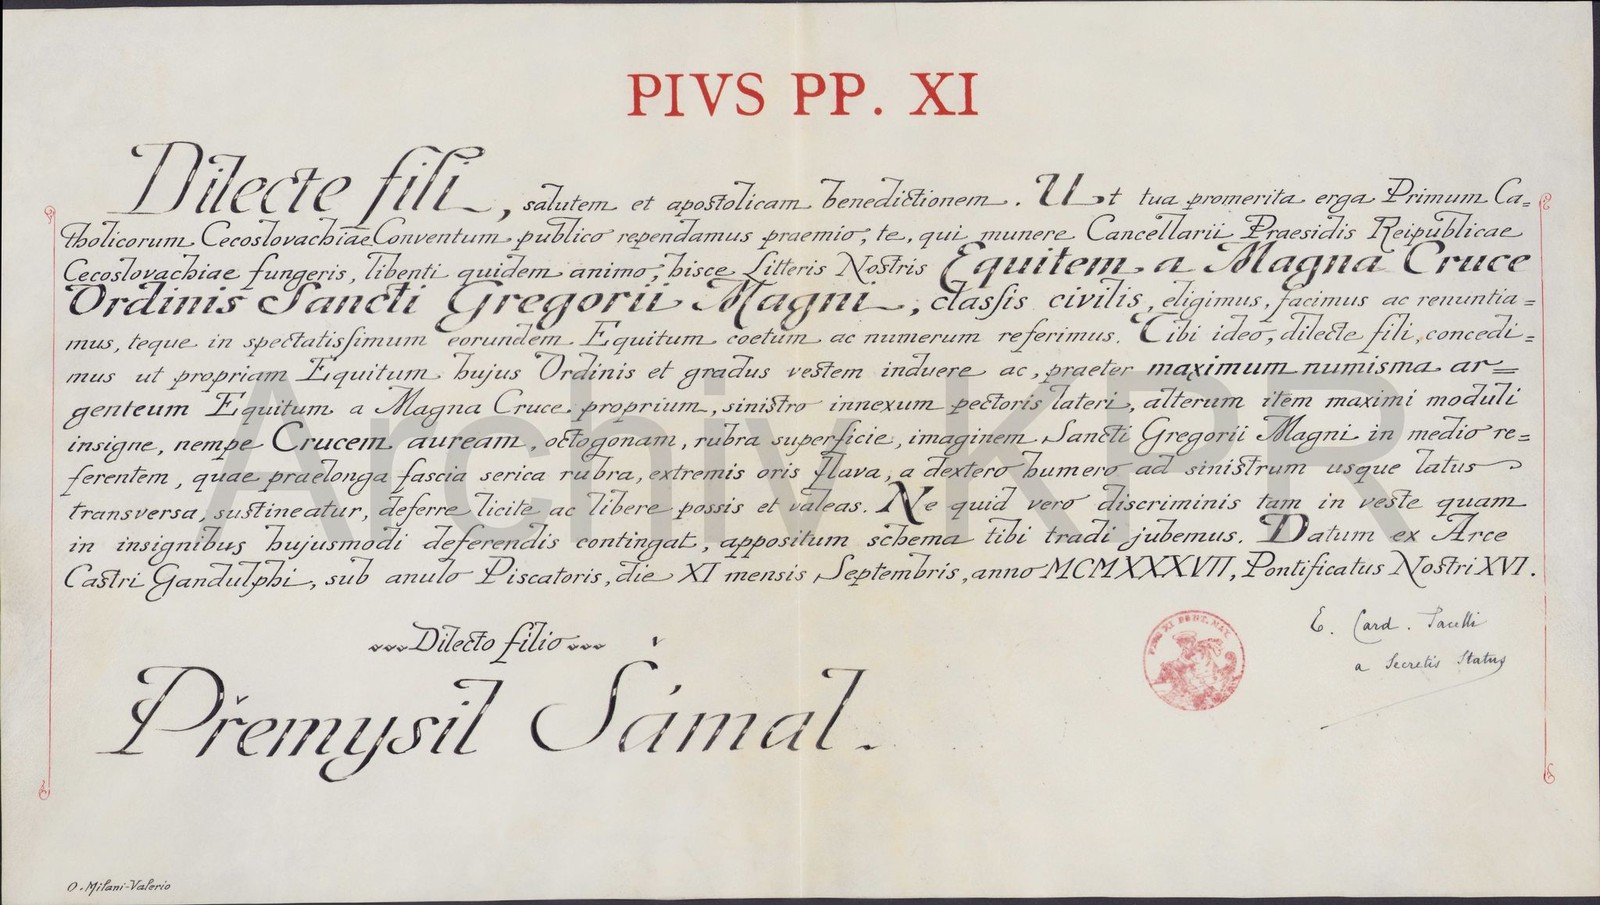 PIVS PP. XI
Dilecte fili, salutem et apostolicam benedictionem. Ut tua promerita erga Primum Ca=
tholicorum Cecoslovachiae Conventum publico rependamus praemio, te, qui munere Cancellarii Praesidis Reipublicae
Cecoslovachiae fungeris, libenti quidem animo, hisce Litteris Nostris Equitem a Magna Cruce
Ordinis Sancti Gregorii Magni, classis civilis, eligimus, facimus ac renuntia=
mus, teque in spectatissimum eorundem Equitum coetum ac numerum referimus. Tibi ideo, dilecte fili, concedi=
mus ut propriam Equitum hujus Ordinis et gradus vestem induere ac, praeter maximum numisma ar=
genteum Equitum a Magna Cruce proprium, sinistro innexum pectoris lateri, alterum item maximi moduli
insigne, nempe Crucem auream, octogonam, rubra superficie, imaginem Sancti Gregorii Magni in medio re=
ferentem, quae praelonga fascia serica rubra, extremis oris flava, a dextero humero ad sinistrum usque latus
transversa, sustineatur, deferre licite ac libere possis et valeas. Ne quid vero discriminis tam in veste quam
in insignibus hujusmodi deferendis contingat, appositum schema tibi tradi jubemus. Datum ex Arce
Castri Gandulphi, sub anulo Piscatoris, die XI mensis Septembris, anno MCMXXXVII, Pontificatus Nostri XVI.
E. Card. Pacelli
a Secretis Status
PIUS XI PONT. MAX.
Dilecto filio
Přemysil Šámal.
O. Milani-Valerio
Archiv KPR